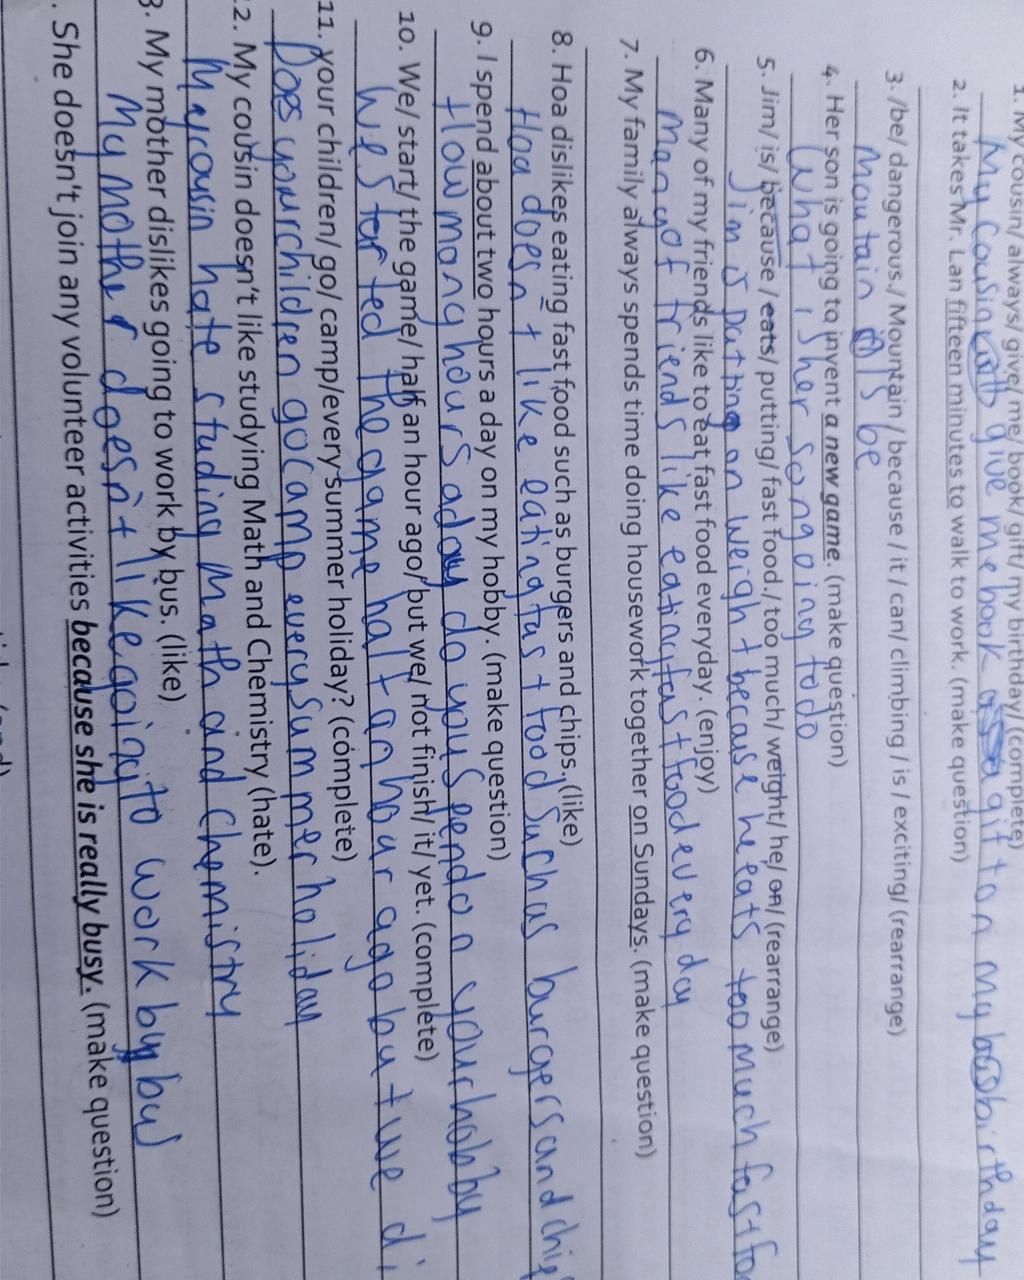 1. My cousin/ always/ give/ me/ book/ gift/ my birthday/ (complete)
My cousin give me book gift on my birthday
2. It takes Mr. Lan fifteen minutes to walk to work. (make question)
3. /be/ dangerous./ Mountain / because / it / can/ climbing / is / exciting/ (rearrange)
Moutain is be
4. Her son is going to invent a new game. (make question)
What is her son going to do
5. Jim/ is/ because / eats/ putting/ fast food./ too much/ weight/ he/ on/ (rearrange)
Jim is putting on weight becase he eats too much fast fo
6. Many of my friends like to eat fast food everyday. (enjoy)
Many of friends like eating fast food every day
7. My family always spends time doing housework together on Sundays. (make question)
8. Hoa dislikes eating fast food such as burgers and chips. (like)
Hoa doesn't like eating fast food such as burgers and chip
9. I spend about two hours a day on my hobby. (make question)
How many hours a day do you spend on your hobby
10. We/ start/ the game/ half an hour ago/ but we/ not finish/ it/ yet. (complete)
We started the game half an hour ago but we di
11. your children/ go/ camp/every summer holiday? (complete)
Does your children go camp every summer holiday
2. My cousin doesn't like studying Math and Chemistry (hate).
My cousin hate studing Math and chemistry
3. My mother dislikes going to work by bus. (like)
My mother doesn't like going to work by bus
. She doesn't join any volunteer activities because she is really busy. (make question)